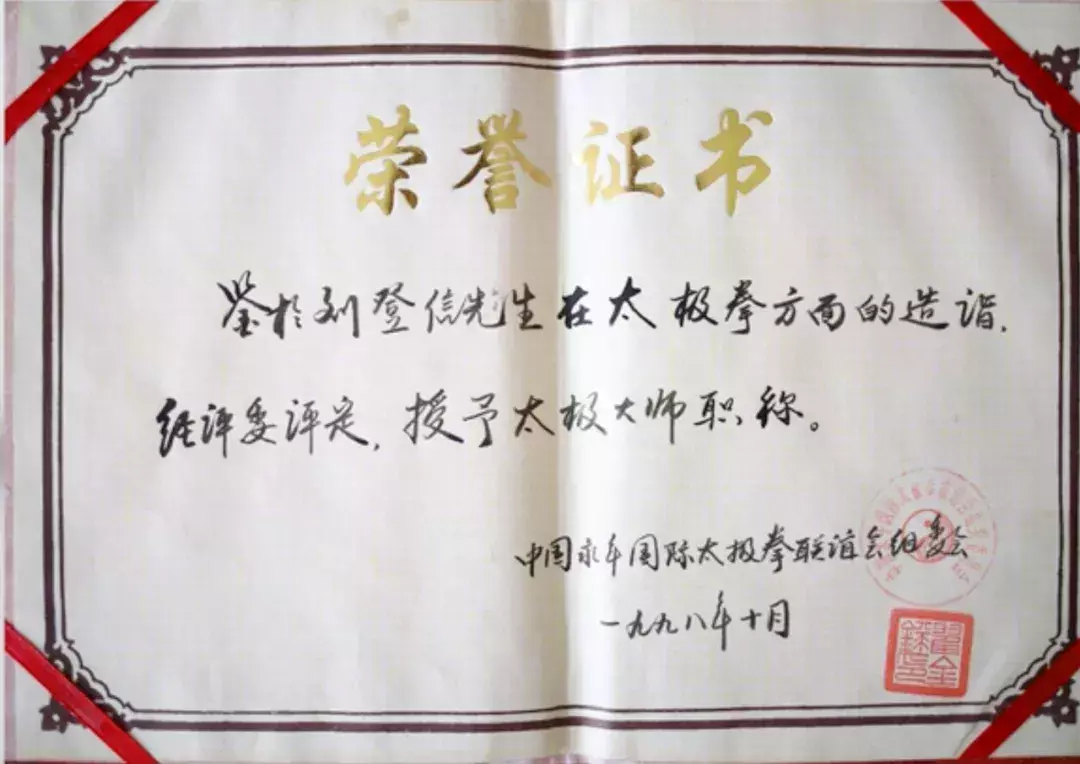 荣誉证书
鉴于刘登信先生在太极拳方面的造诣,
经评委评定,授予太极大师职称。
中国永年国际太极拳联谊会组委会
一九九八年十月